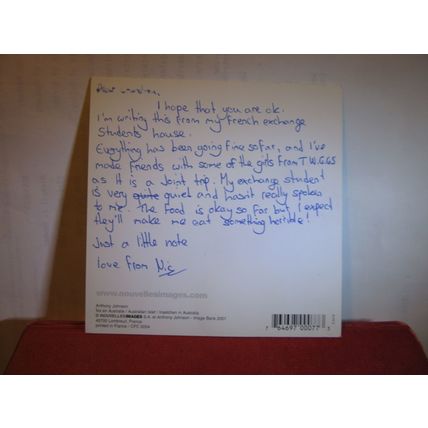 I hope that you are ok.
I'm writing this from my french exchange
Students house.
Everything has been going fine so far, and I've
made friends with some of the girls from T.W.G.G.S
as it is a joint trip. My exchange student
is very quite quiet and hasn't really spoken
to me. The food is okay so far but I expect
they'll make me eat something horrible!
Just a little note
love from Nic
www.nouvellesimages.com
Anthony Johnson
© NOUVELLES IMAGES S.A. et Anthony Johnson - Image Bank 2001
45700 Lombreuil, France
printed in France - CFC 0004
7 64697 00077